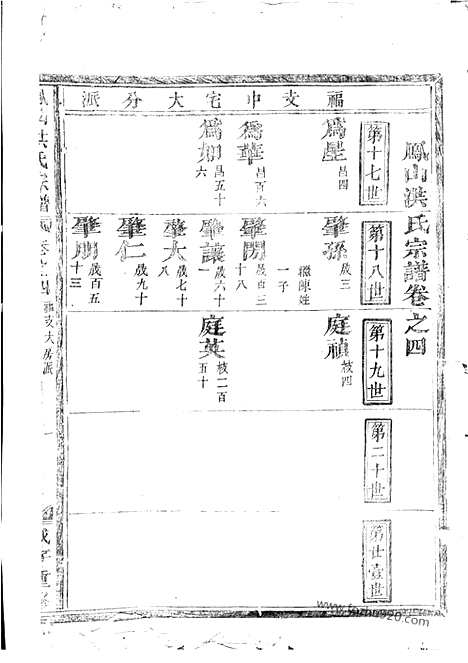 鳳山洪氏宗譜卷之四
福支中宅大分派
第十七世
為星 昌四
為華 昌百六
為如 昌五十六
第十八世
肇孫 歲三
繼陳姓一子
肇閍 歲百三十八
肇讓 歲六十一
肇大 歲七十八
肇仁 歲九十
肇朋 歲百五十三
第十九世
庭禎 枝四
庭英 枝二百五十
第二十世
第廿壹世
山洪氏宗譜
卷之四
福支大房派